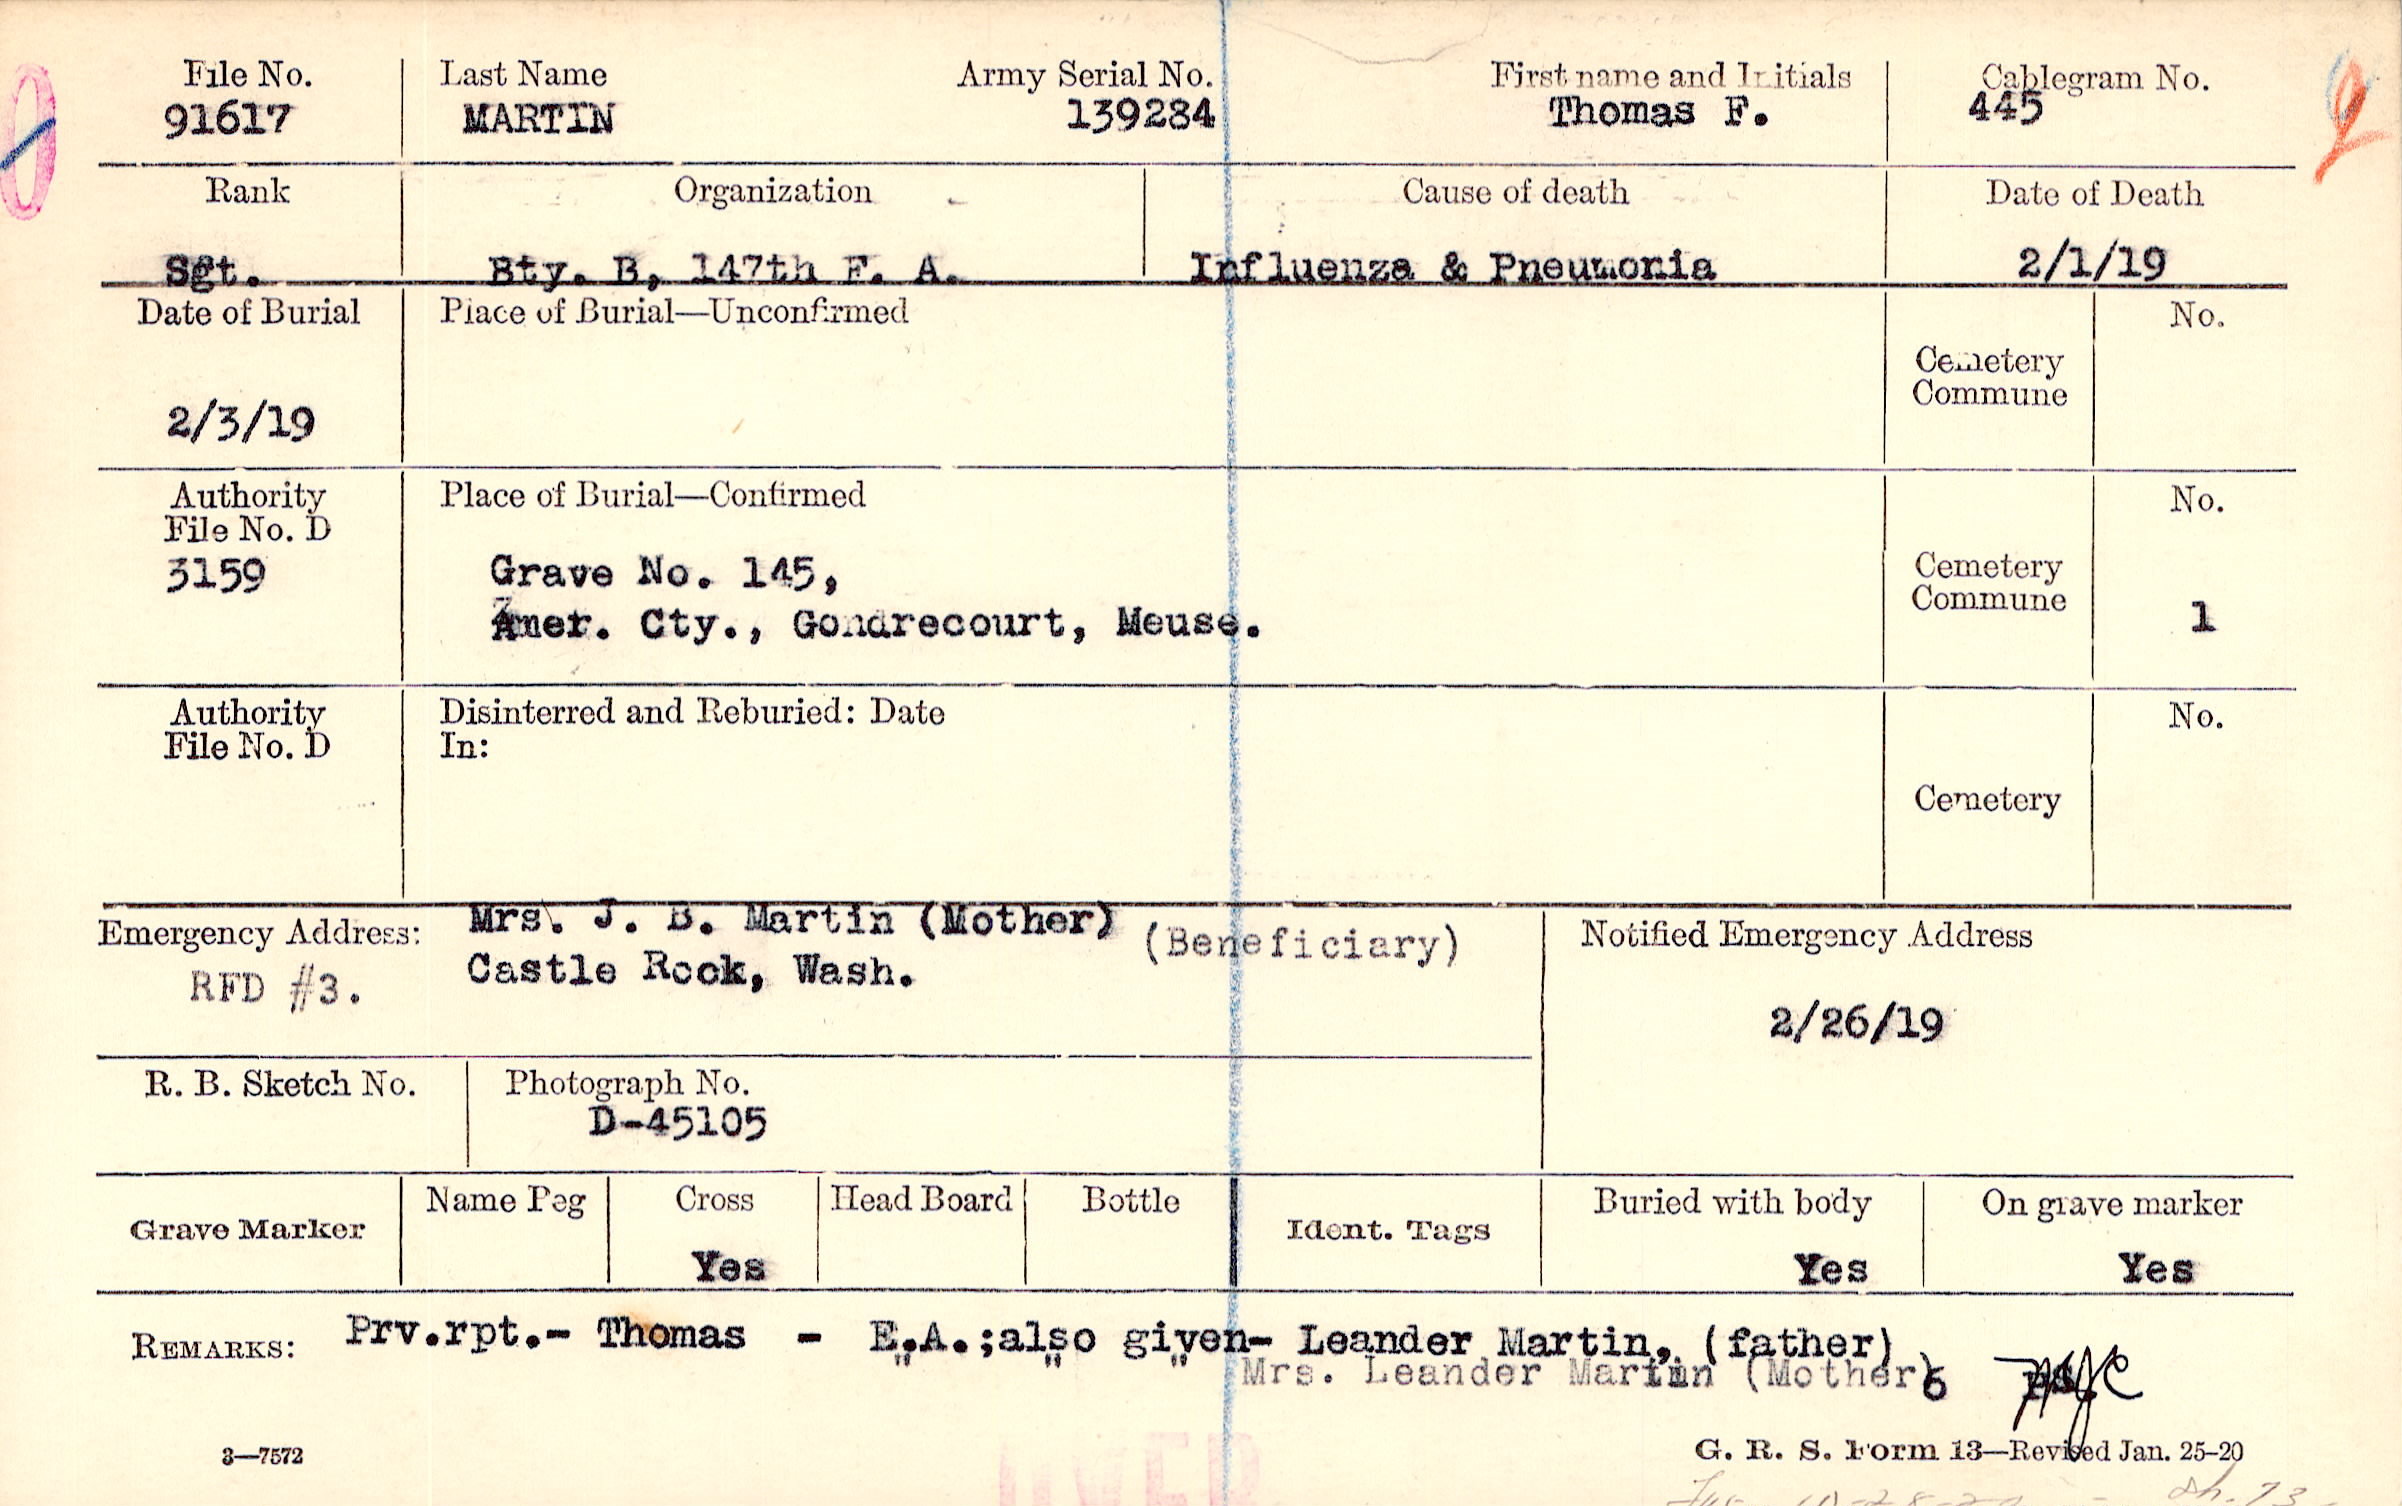 File No. Last Name Army Serial No. First name and Initials Cablegram No.
91617 MARTIN 139284 Thomas F. 445
Rank Organization Cause of death Date of Death
Sgt. Bty. B, 147th F. A. Influenza & Pneumonia 2/1/19
Date of Burial Place of Burial—Unconfirmed No.
Cemetery
Commune
2/3/19
Authority Place of Burial—Confirmed No.
File No. D
3159 Grave No. 145, Cemetery
Commune
Amer. Cty., Gondrecourt, Meuse. 1
Authority Disinterred and Reburied: Date No.
File No. D In:
Cemetery
Emergency Address: Mrs. J. B. Martin (Mother) (Beneficiary) Notified Emergency Address
RFD #3. Castle Rock, Wash.
2/26/19
R. B. Sketch No. Photograph No.
D-45105
Grave Marker Name Peg Cross Head Board Bottle Ident. Tags Buried with body On grave marker
Yes Yes Yes
REMARKS: Prv.rpt.- Thomas - E.A.;also given- Leander Martin, (father)
" " " Mrs. Leander Martin (Mother)
3—7572 G. R. S. Form 13—Revised Jan. 25-20